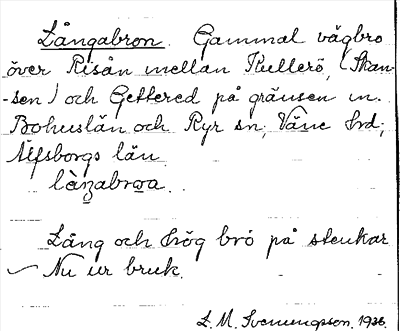 Långabron. Gammal vägbro
över Risån mellan Kullerö, (Skan-
-sen) och Gettered på gränsen m.
Bohuslän och Ryr sn; Väne Hrd;
Älfsborgs län
làŋabrωa.
Lång och hög bro på stenkar
Nu ur bruk.
L. M. Svenungsson. 1936.